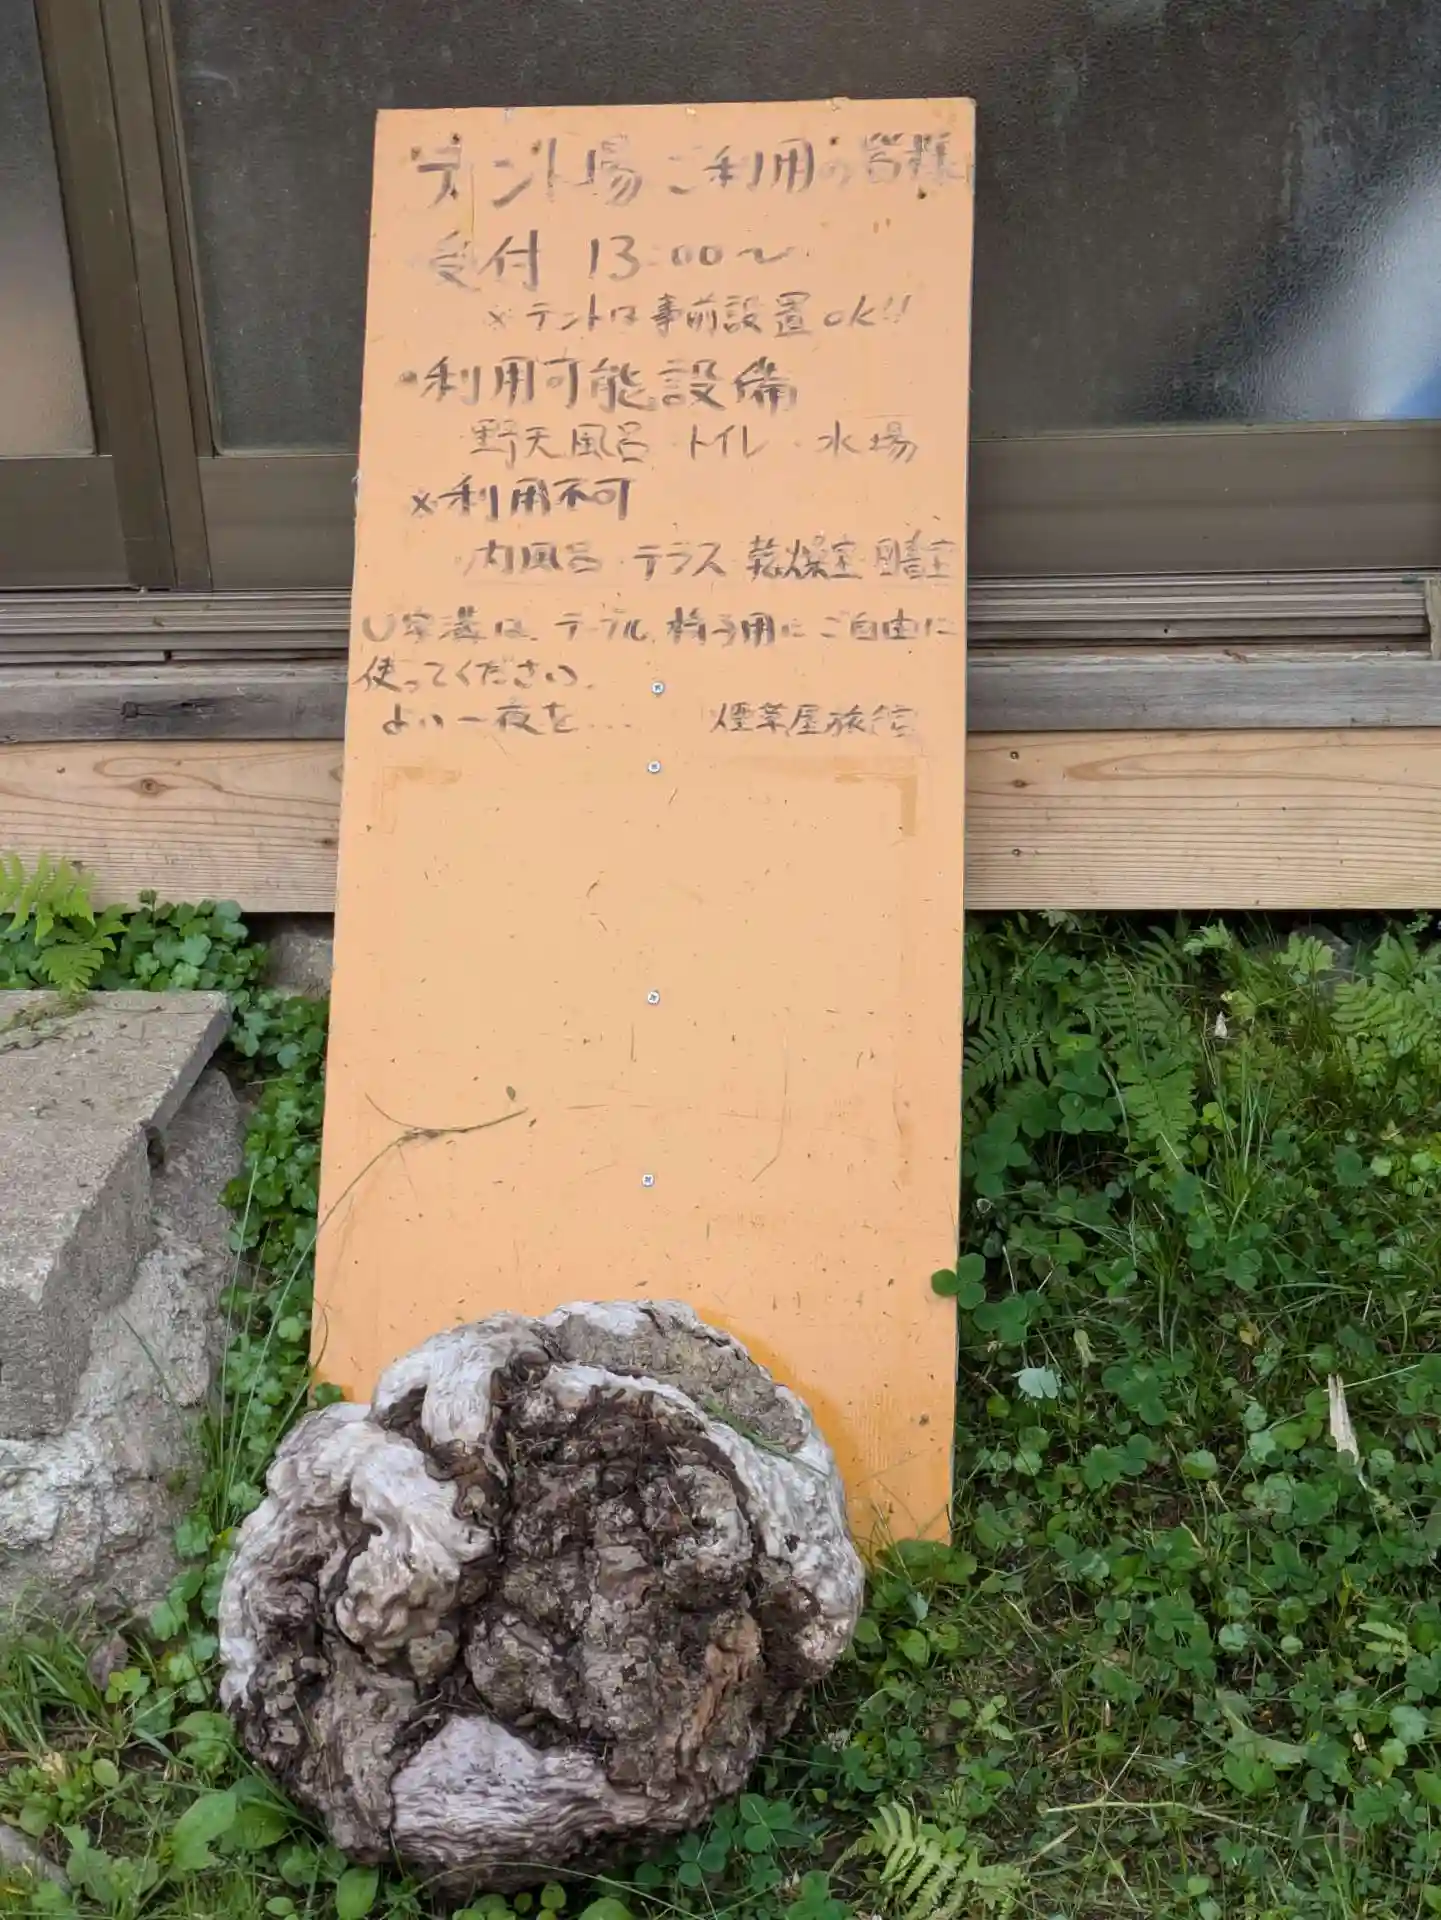 テント場ご利用の皆様
受付 13:00～
※テントは事前設置OK!!
・利用可能設備
野天風呂・トイレ・水場
※利用不可
内風呂・テラス 乾燥室 自炊室
U字溝は、テーブル、椅子用にご自由に
使ってください。
よい一夜を.... 煙草屋旅館